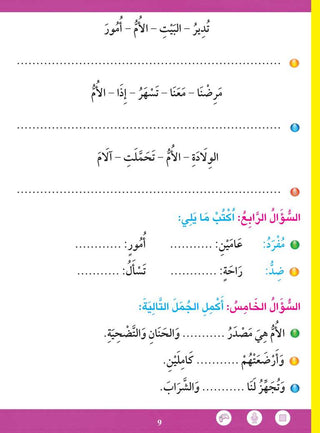 تُدِيرُ – البَيْتِ – الأُمُّ – أُمُورَ
........................................
مَرِضْنَا – مَعَنَا – تَسْهَرُ – إِذَا – الأُمُّ
........................................
الوِلَادَةِ – الأُمُّ – تَحَمَّلَتِ – آلَامَ
........................................
السُّؤَالُ الرَّابِعُ: اُكْتُبْ مَا يَلِي:
مُفْرَدُ: عَامَيْنِ: ........... أُمُورٍ: ............
ضِدُّ: رَاحَةٍ: ........... تَسْأَلُ: ............
السُّؤَالُ الخَامِسُ: أَكْمِلِ الجُمَلَ التَّالِيَةَ:
الأُمُّ هِيَ مَصْدَرُ ........... وَالحَنَانِ وَالتَّضْحِيَّةِ.
وَأَرْضَعَتْهُمْ ........... كَامِلَيْنِ.
وَتُجَهِّزُ لَنَا ........... وَالشَّرَابَ.
9